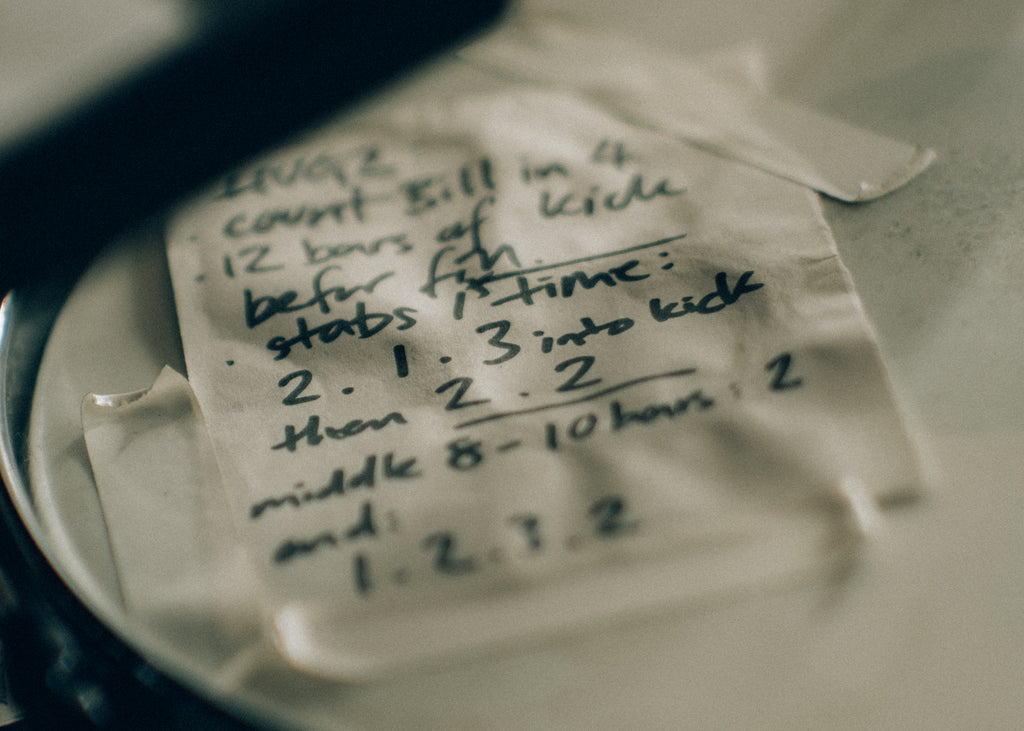 · count Bill in 4
· 12 bars of kick
befur
· stabs is time:
2 . 1 . 3 into kick
then 2 . 2
middle 8-10 bars : 2
end:
1 . 2 . 3 . 2